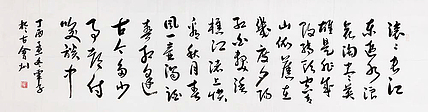 滚滚长江
东逝水浪
花淘尽英
雄是非成
败转头空青
山依旧在
几度夕阳
红白发渔
樵江渚上惯
看秋月春
风一壶浊酒
喜相逢
古今多少
事都付
笑谈中
丁酉
於古会州